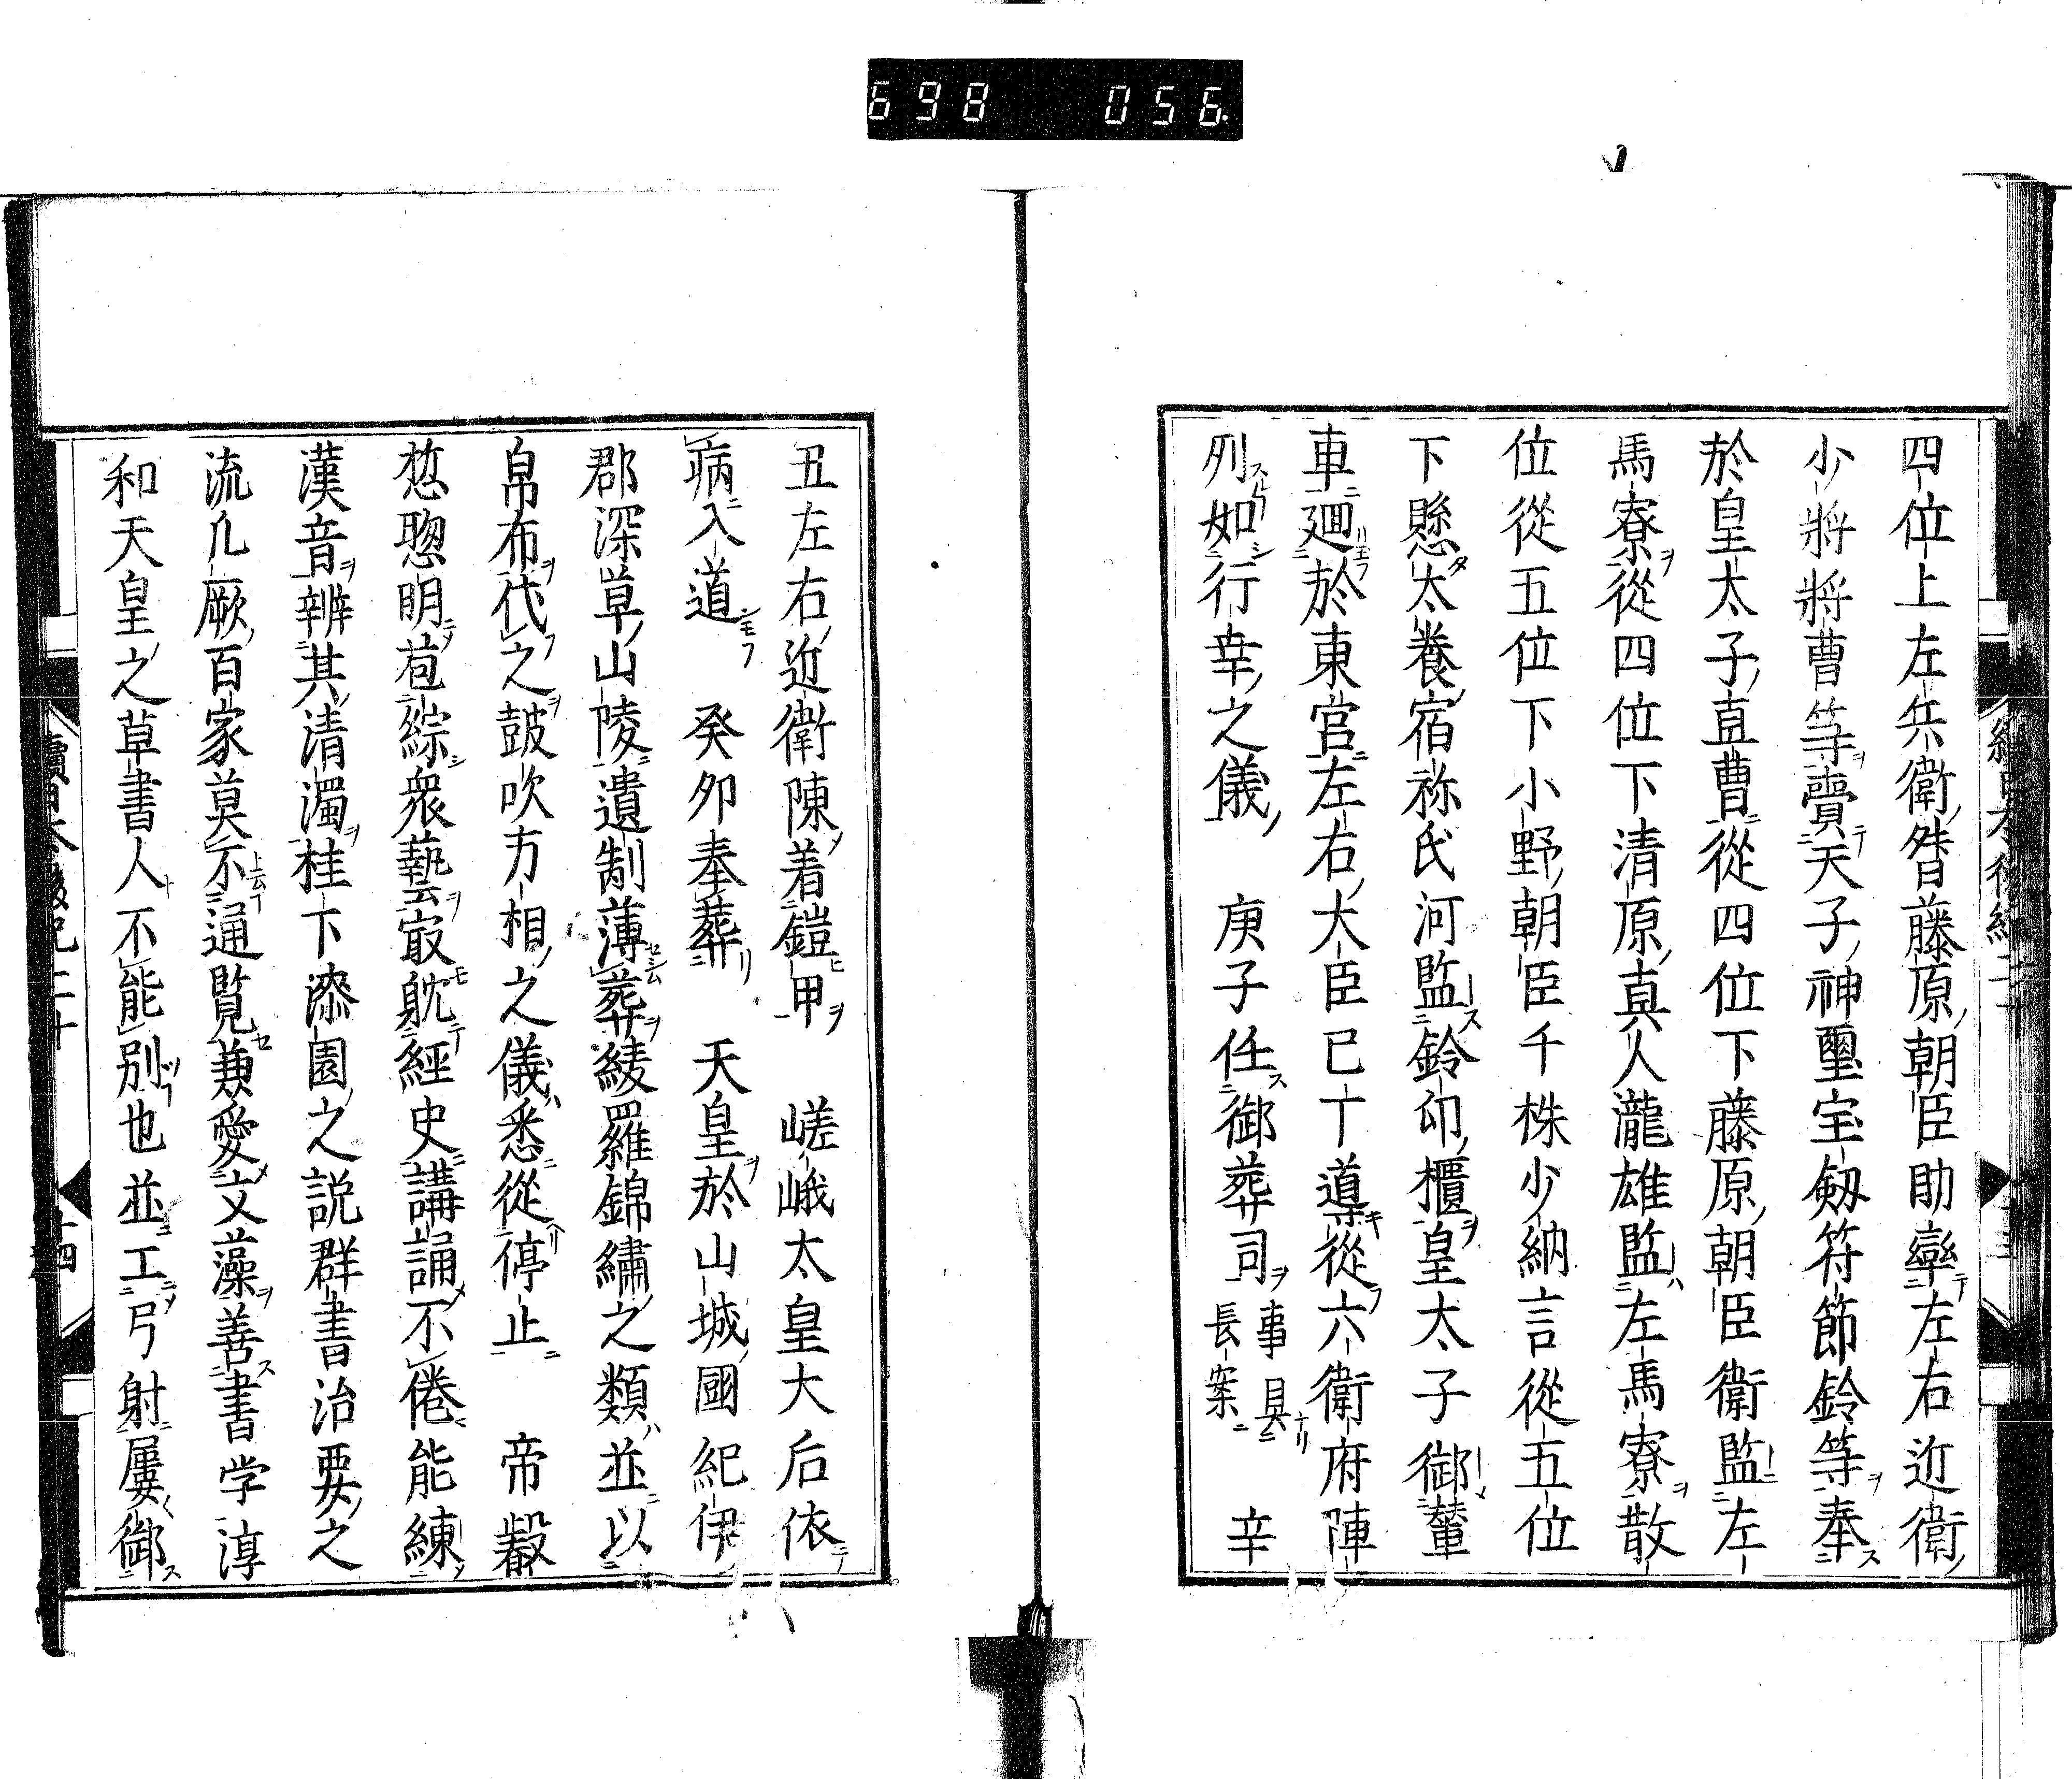 698 056
四位上左兵衛督藤原朝臣助率左右近衛
少將將曹等賷天子神璽宝剱符節鈴等奉
於皇太子直曹從四位下藤原朝臣衛監左
馬寮從四位下清原真人瀧雄監左馬寮散
位從五位下小野朝臣千株少納言從五位
下懸太養宿祢氏河監鈴印櫃皇太子御輦
車廻於東宮左右大臣已下導從六衛府陣
列如行幸之儀　庚子任御葬司事具長案　辛
丑左右近衛陳着鎧甲　嵯峨太皇大后依
病入道　癸卯奉葬　天皇於山城國紀伊
郡深草山陵遺制薄葬綾羅錦繡之類並以
帛布代之鼓吹方相之儀悉從停止　帝叡
悊聦明苞綜衆藝㝡躭經史講誦不倦能練
漢音辨其清濁桂下漆園之説群書治要之
流凢厥百家莫不通覧兼愛文藻善書学淳
和天皇之草書人不能別也並工弓射屢御